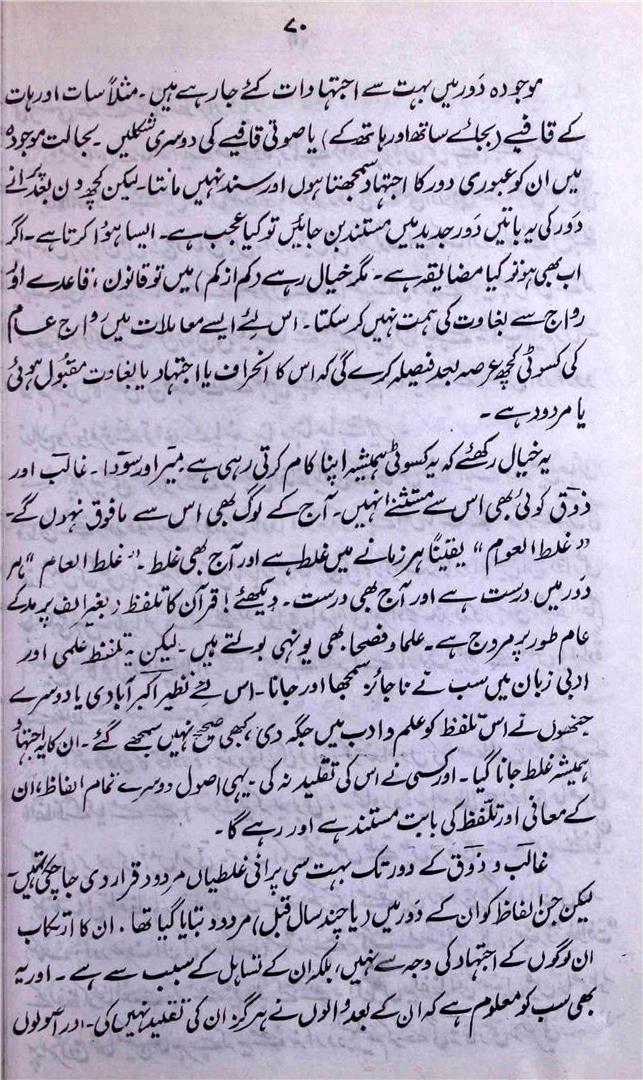 ۷۰
موجودہ دَور میں بہت سے اجتہادات کئے جا رہے ہیں۔ مثلاً سات اور ہات
کے قافیے (بجائے ساتھ اور ہاتھ کے) یا صوتی قافیے کی دوسری شکلیں۔ بحالت موجودہ
میں ان کو عبوری دور کا اجتہاد سمجھتا ہوں اور سند نہیں مانتا۔ لیکن کچھ دن بعد پُرانے
دَور کی یہ باتیں دَور جدید میں مستند بن جائیں تو کیا عجب ہے۔ ایسا ہوا کرتا ہے۔ اگر
اب بھی ہو تو کیا مضایقہ ہے۔ مگر خیال رہے (کم از کم) میں تو قانون، قاعدے اور
رواج سے بغاوت کی ہمت نہیں کر سکتا۔ اس لئے ایسے معاملات میں رواج عام
کی کسوٹی کچھ عرصہ بعد فیصلہ کرے گی کہ اس کا انحراف یا اجتہاد یا بغاوت مقبول ہوئی
یا مردود ہے۔
یہ خیال رکھئے کہ یہ کسوٹی ہمیشہ اپنا کام کرتی رہی ہے میرؔ اور سوداؔ۔ غالبؔ اور
ذوقؔ کوئی بھی اس سے مستثنےٰ نہیں۔ آج کے لوگ بھی اس سے مافوق نہ ہوں گے۔
"غلط العوام" یقیناً ہر زمانے میں غلط ہے اور آج بھی غلط۔ "غلط العام" ہر
دَور میں درست ہے اور آج بھی درست۔ دیکھئے! قرآن کا تلفظ (بغیر الف پر مد کے
عام طور پر مروج ہے۔ علما و فصحا بھی یونہی بولتے ہیں۔ لیکن یہ تلفظ علمی اور
ادبی زبان میں سب نے ناجائز سمجھا اور جانا۔ اس لئے نظیرؔ اکبر آبادی یا دوسرے
جنھوں نے اس تلفظ کو علم و ادب میں جگہ دی، کبھی صحیح نہیں سمجھے گئے۔ ان کا یہ اجتہاد
ہمیشہ غلط جانا گیا۔ اور کسی نے اس کی تقلید نہ کی۔ یہی اصول دوسرے تمام الفاظ، ان
کے معانی اور تلفظ کی بابت مستند ہے اور رہے گا۔
غالبؔ و ذوقؔ کے دور تک بہت سی پرانی غلطیاں مردود قرار دی جا چکی تھیں۔
لیکن جن الفاظ کو ان کے دَور میں (یا چند سال قبل) مردود بتایا گیا تھا۔ ان کا ارتکاب
ان لوگوں کے اجتہاد کی وجہ سے نہیں، بلکہ ان کے تساہل کے سبب سے ہے۔ اور یہ
بھی سب کو معلوم ہے کہ ان کے بعد والوں نے ہرگز ان کی تقلید نہیں کی۔ اور اصولوں